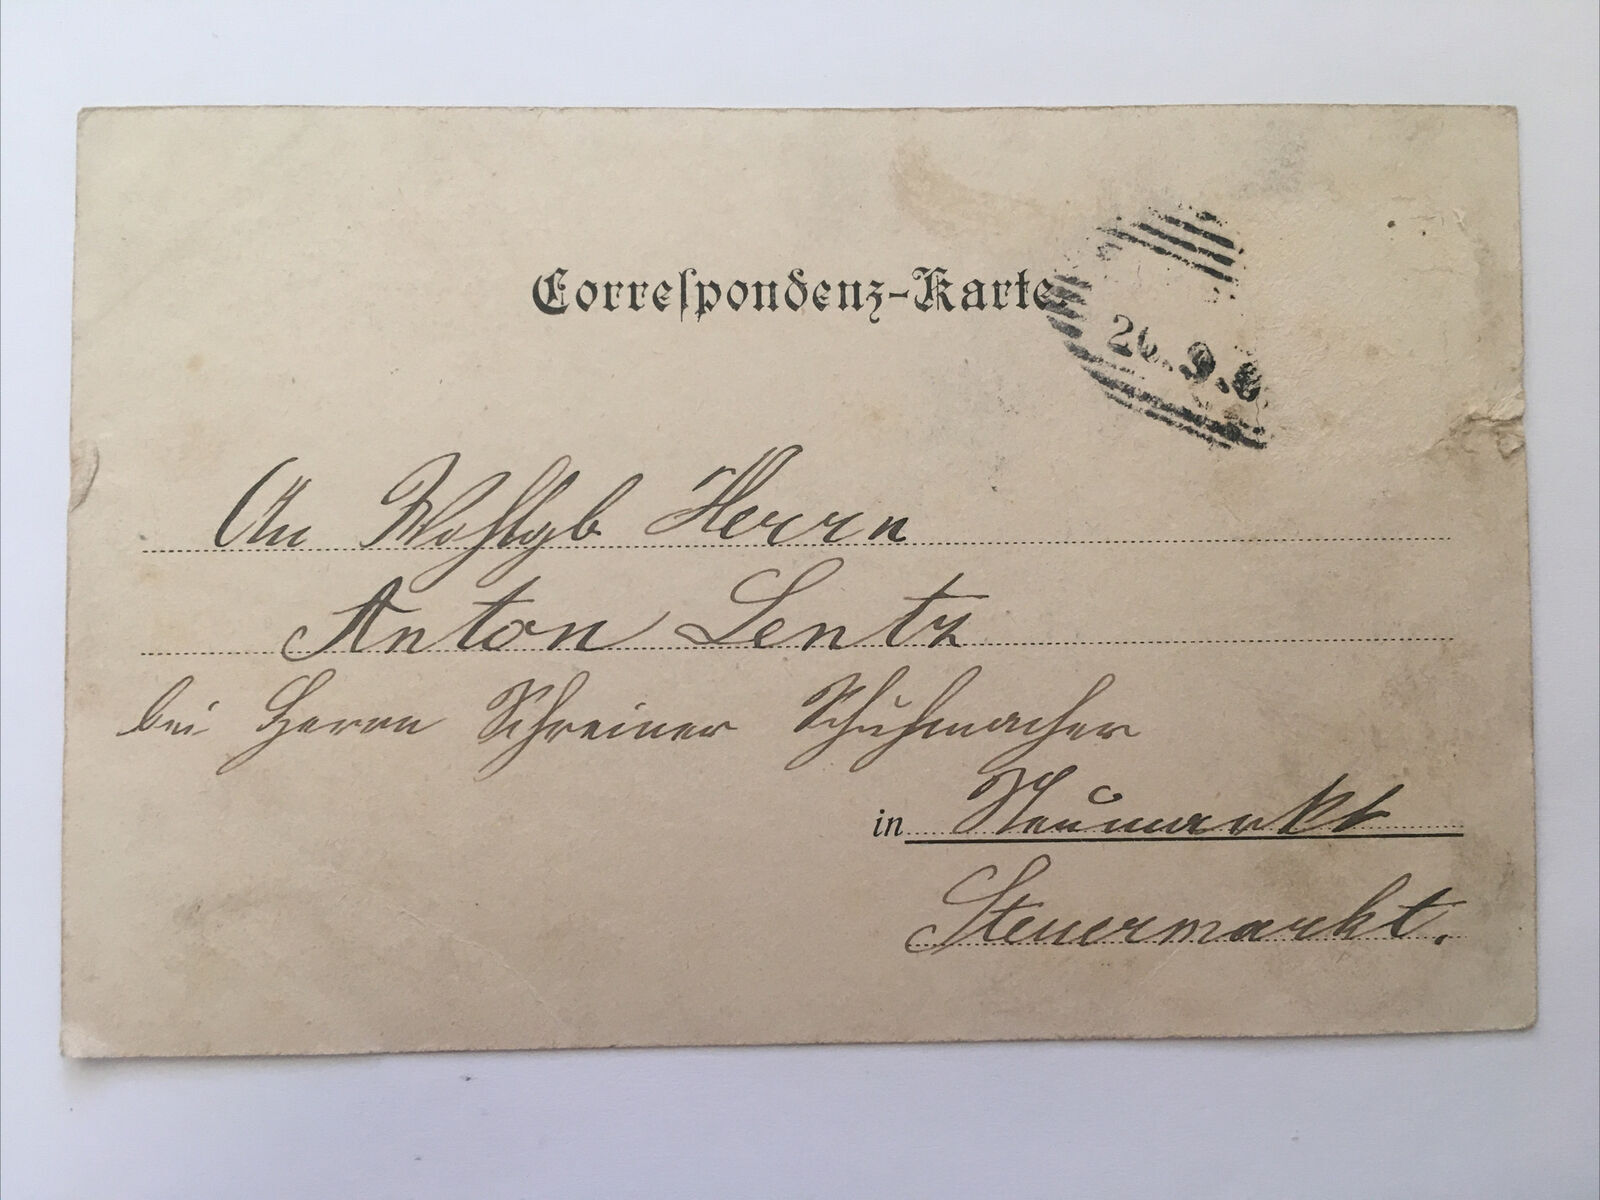 Correspondenz-Karte.
26.9.
An Wohlgb Herrn
Anton Lentz
bei Herrn Schreiner Schuhmacher
in Neumarkt
Steuermarkt.